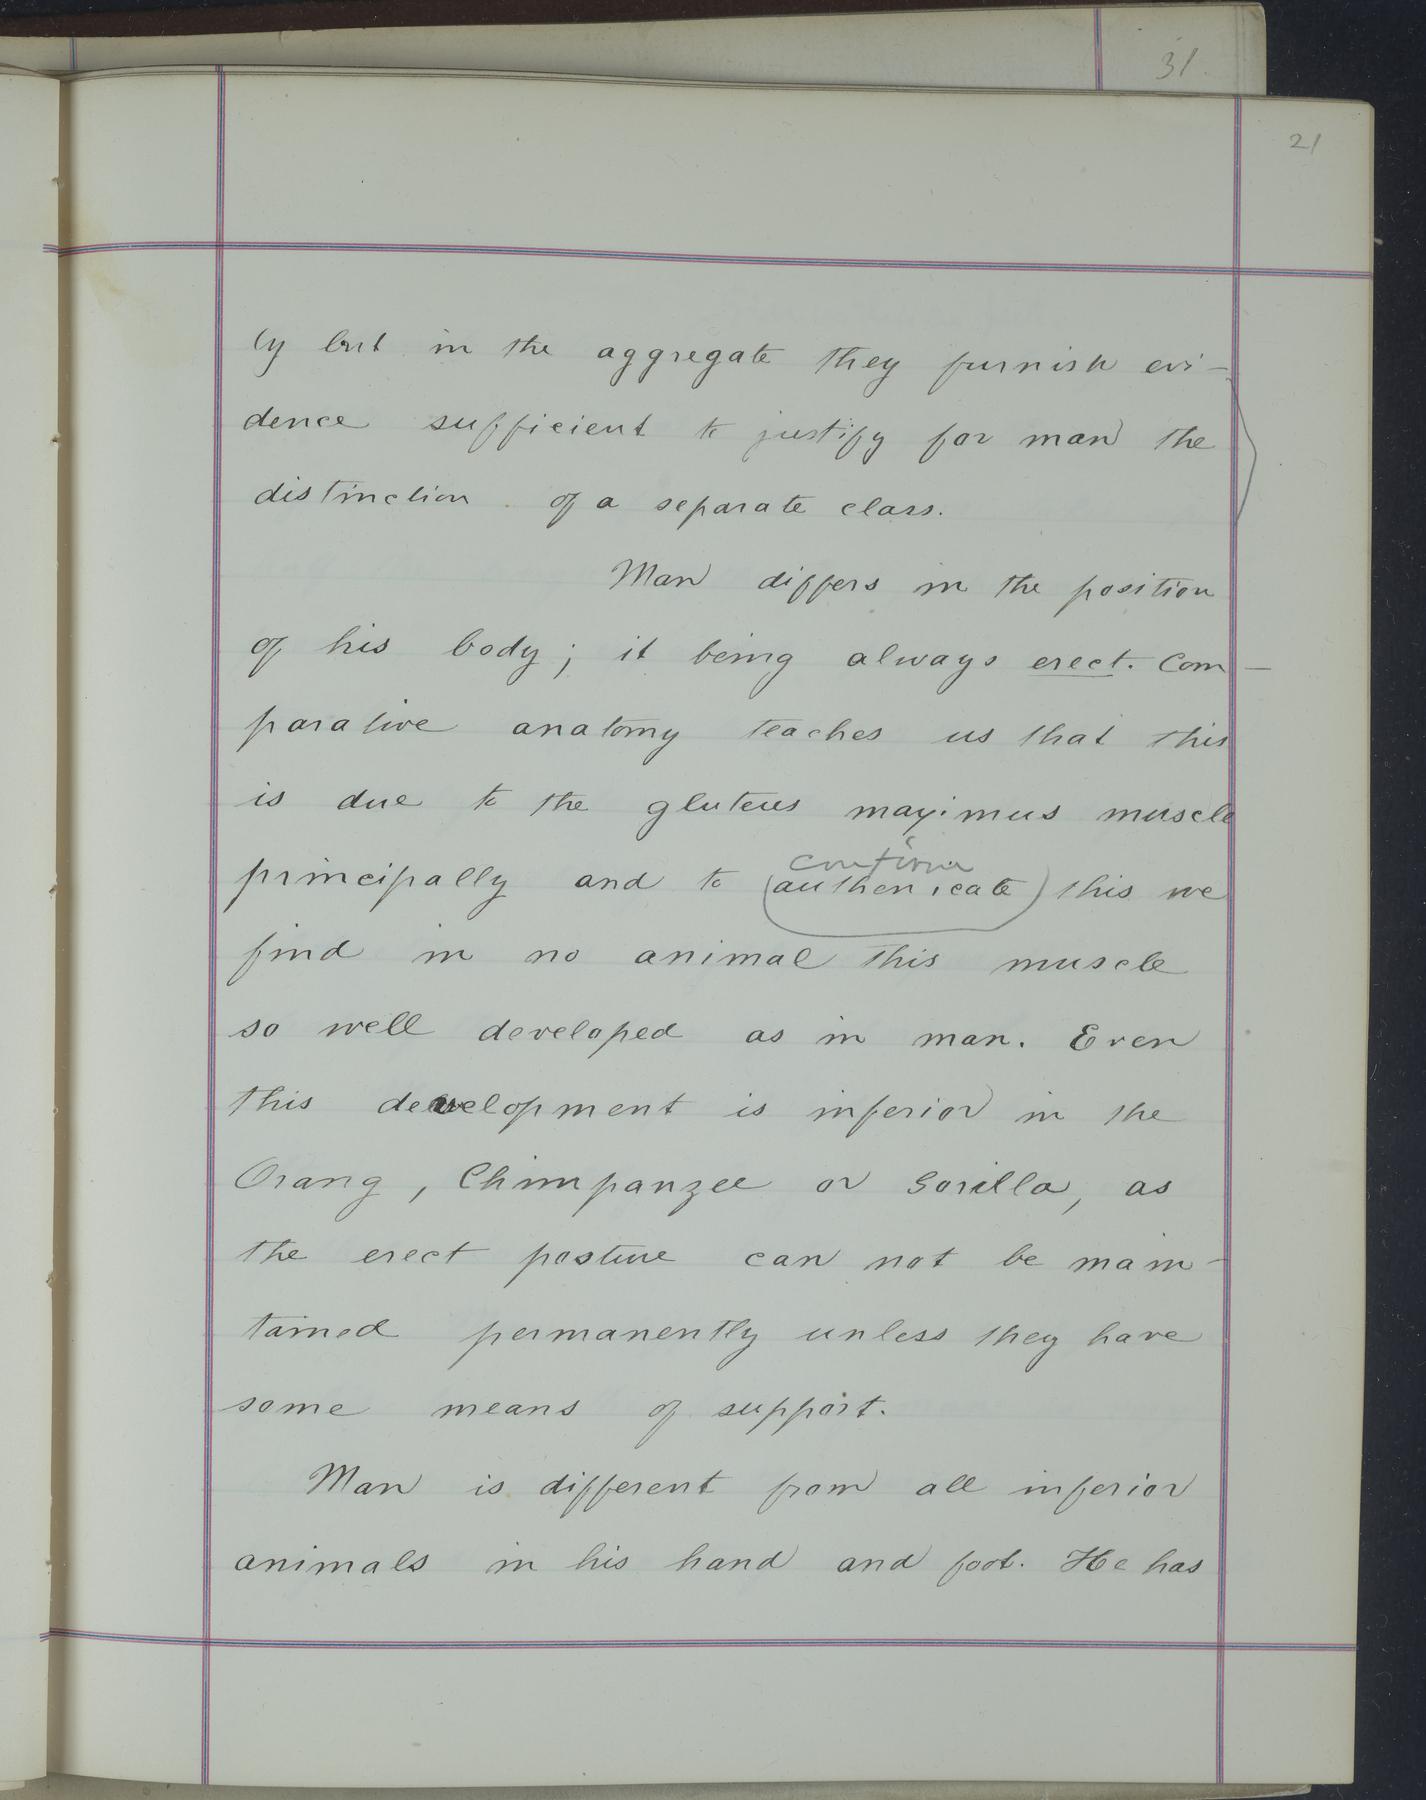 31.
21
ly but in the aggregate they furnish evi-
dence sufficient to justify for man the
distinction of a separate class.
Man differs in the position
of his body; it being always erect. Com-
parative anatomy teaches us that this
is due to the gluteus maximus muscle
confirm
principally and to (authenicate) this we
find in no animal this muscle
so well developed as in man. Even
this development is inferior in the
Orang, Chimpanzee or Gorilla, as
the erect posture can not be main-
tained permanently unless they have
some means of support.
Man is different from all inferior
animals in his hand and foot. He has